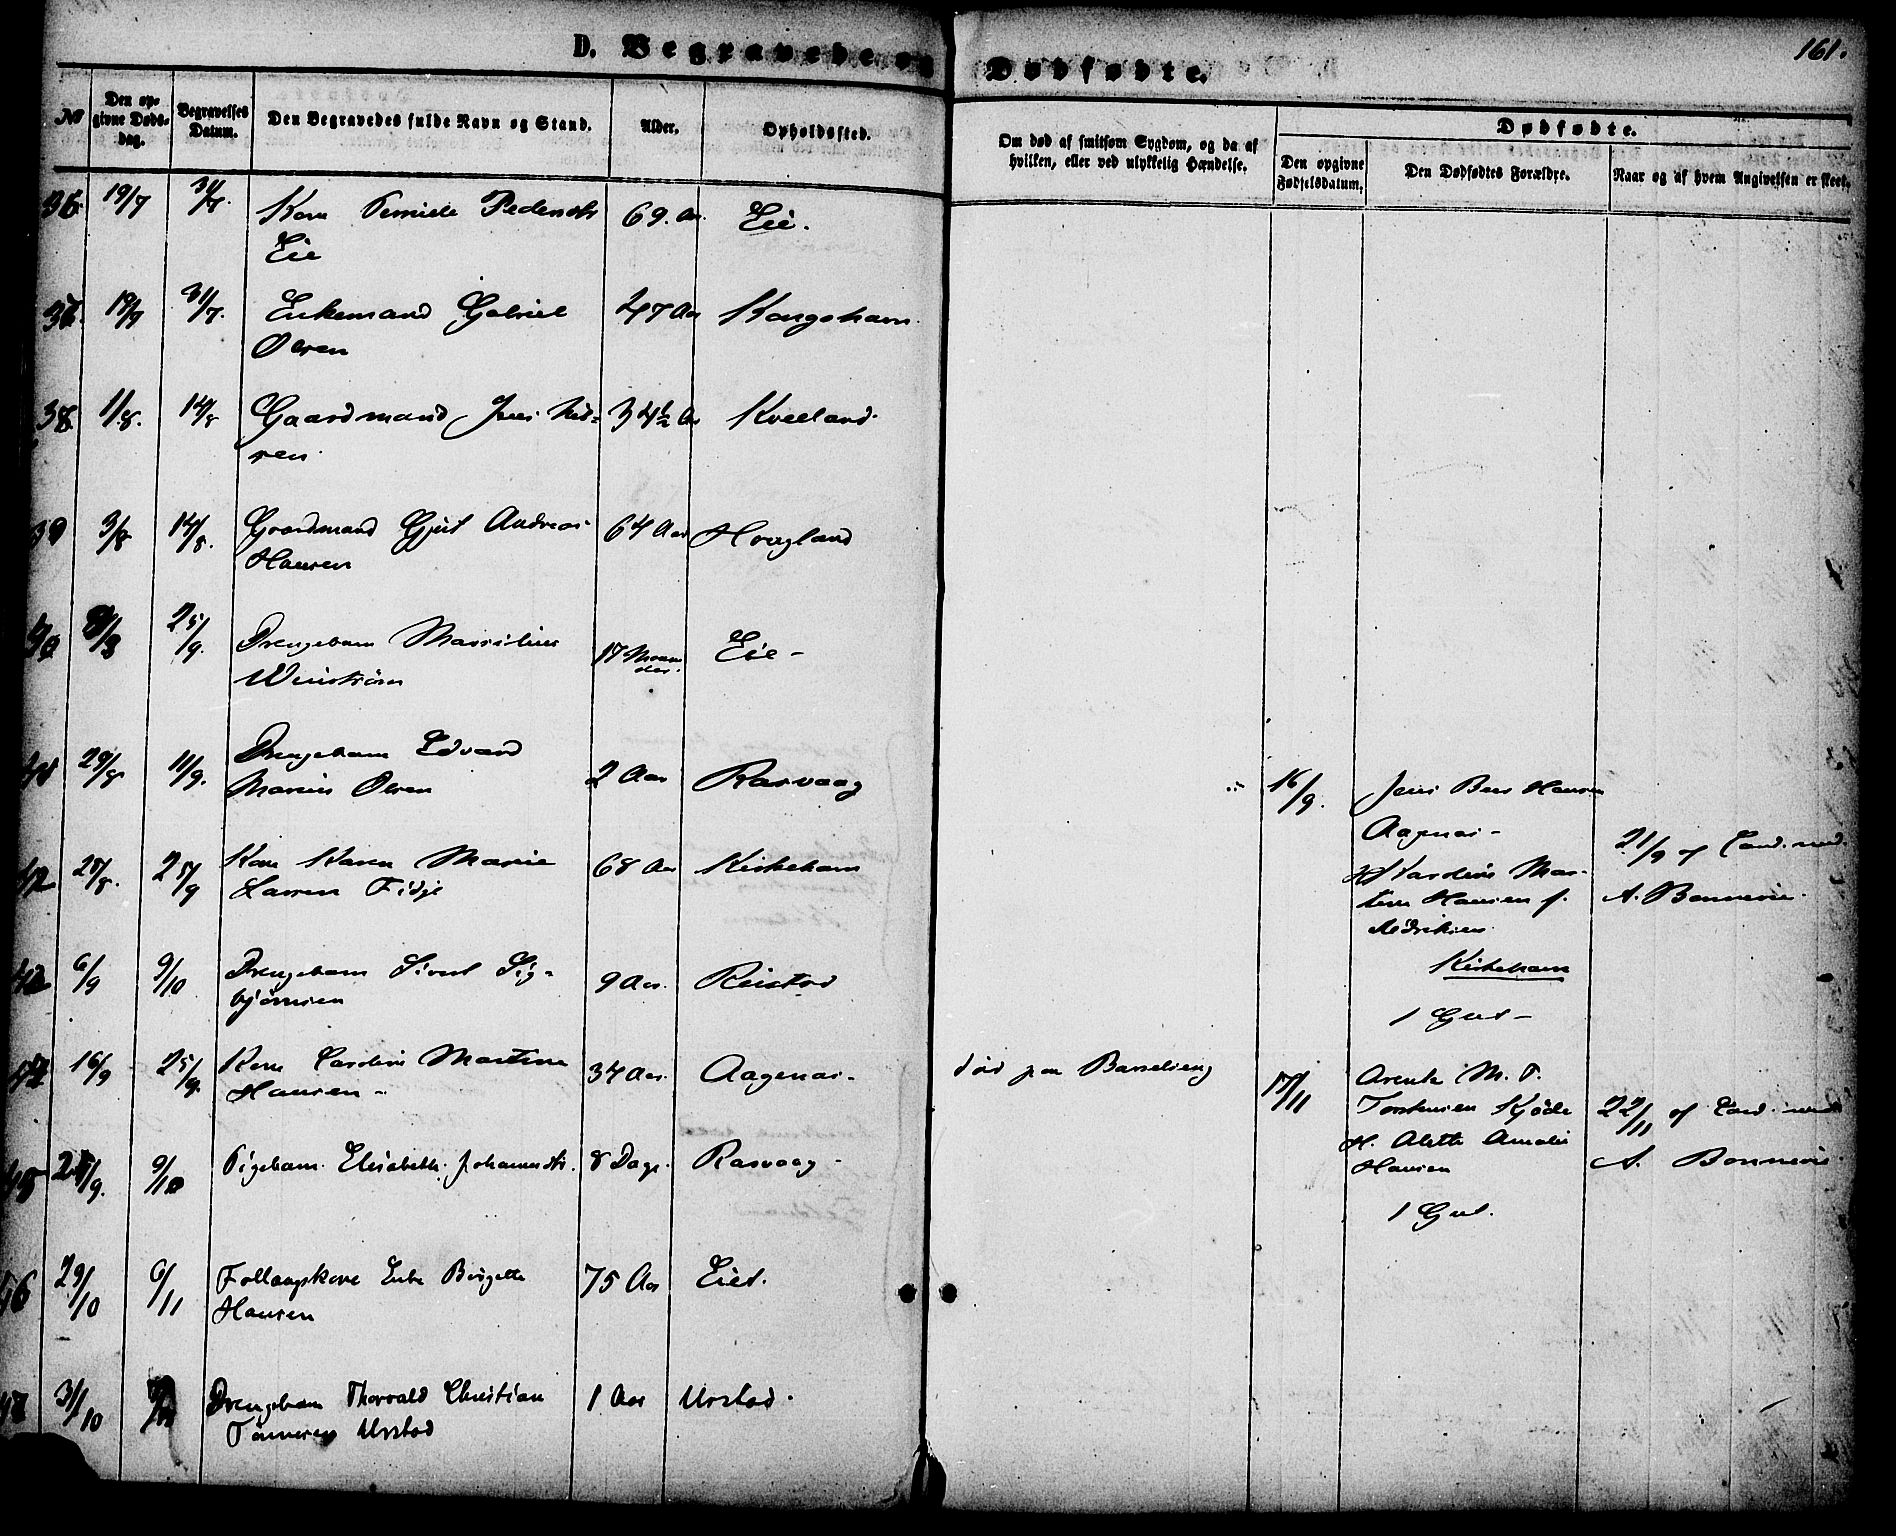 D. Begravede og Dødfødte.
161.
No
Den opgivne Dødsdag.
Begravelses Datum.
Den Begravedes fulde Navn og Stand.
Alder.
Opholdssted.
Om død af smitsom Sygdom, og da af
hvilken, eller ved ulykkelig Hændelse.
Dødfødte.
Den opgivne
Fødselsdatum.
Den Dødfødtes Forældre.
Naar og af hvem Angivelsen er skeet.
36 19/7 Kone Pernille Pedersdtr 69. Aar Eie.
Eie
37. 19/7 31/7. Enkemand Gabriel 47 Aar Kongshavn
Olsen
38 1/8. 14/8 Gaardmand Jens 34½ Aar Kveeland
sen
39 3/8 14/8. Gaardmand Gjert Andreas 64 Aar Hougland
Hansen
40 25/9. Drengebarn 17 Maaneder. Eie
41 29/8 11/9. Drengebarn Edvard 2 Aar Rasvaag
Marius Olsen
42 28/8. 25/9 Kone Karen Marie 68 Aar Kirkehavn
Larsen Fidje
6/9 9/10 Drengebarn Sivert Sig- 9 Aar. Reistad
bjørnsen
44 16/9 25/9. Kone Caroline Martine 34 Aar. Aagenæs - død paa Barselseng
Hansen -
45 9/10 Pigebarn Elisabeth Johannsdtr. 8 Dage. Rasvaag -
46 29/10 6/11 Fattigenke Birgette 75 Aar Eiet.
Hansen
47 31/10 Drengebarn Thorvald Christian 1 Aar Urstad.
Tønnesen Urstad
16/9. Jens Hansen
Aagenæs -
H Karoline Mar-
tine Hansen f.
Kirkehavn
1 Gut -
21/9 af Cand. med.
A. Bonnevie.
17/11 Arent M. T.
Torstensen Kjøde
H. Alette Amalie
Hansen
1 Gut.
22/11 af Cand. med
A. Bonnevie.